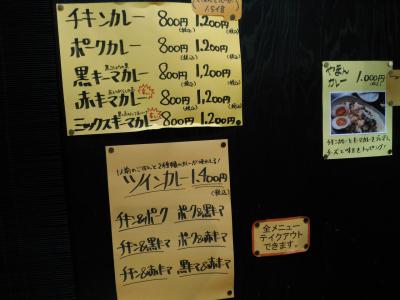 1.5倍
チキンカレー 800円(税込) 1,200円(税込)
ポークカレー 800円(税込) 1,200円(税込)
黒キーマカレー 800円(税込) 1,200円(税込)
赤キーマカレー 800円(税込) 1,200円(税込)
ミックスキーマカレー 800円(税込) 1,200円(税込)
やまん
カレー 1,000円(税込)
チキンカレーとキーマカレーを
チーズと味玉をトッピング!
ツインカレー 1,400円(税込)
チキン&ポーク ポーク&黒キーマ
チキン&黒キーマ ポーク&赤キーマ
チキン&赤キーマ 黒キーマ&赤キーマ
全メニュー
テイクアウト
できます。